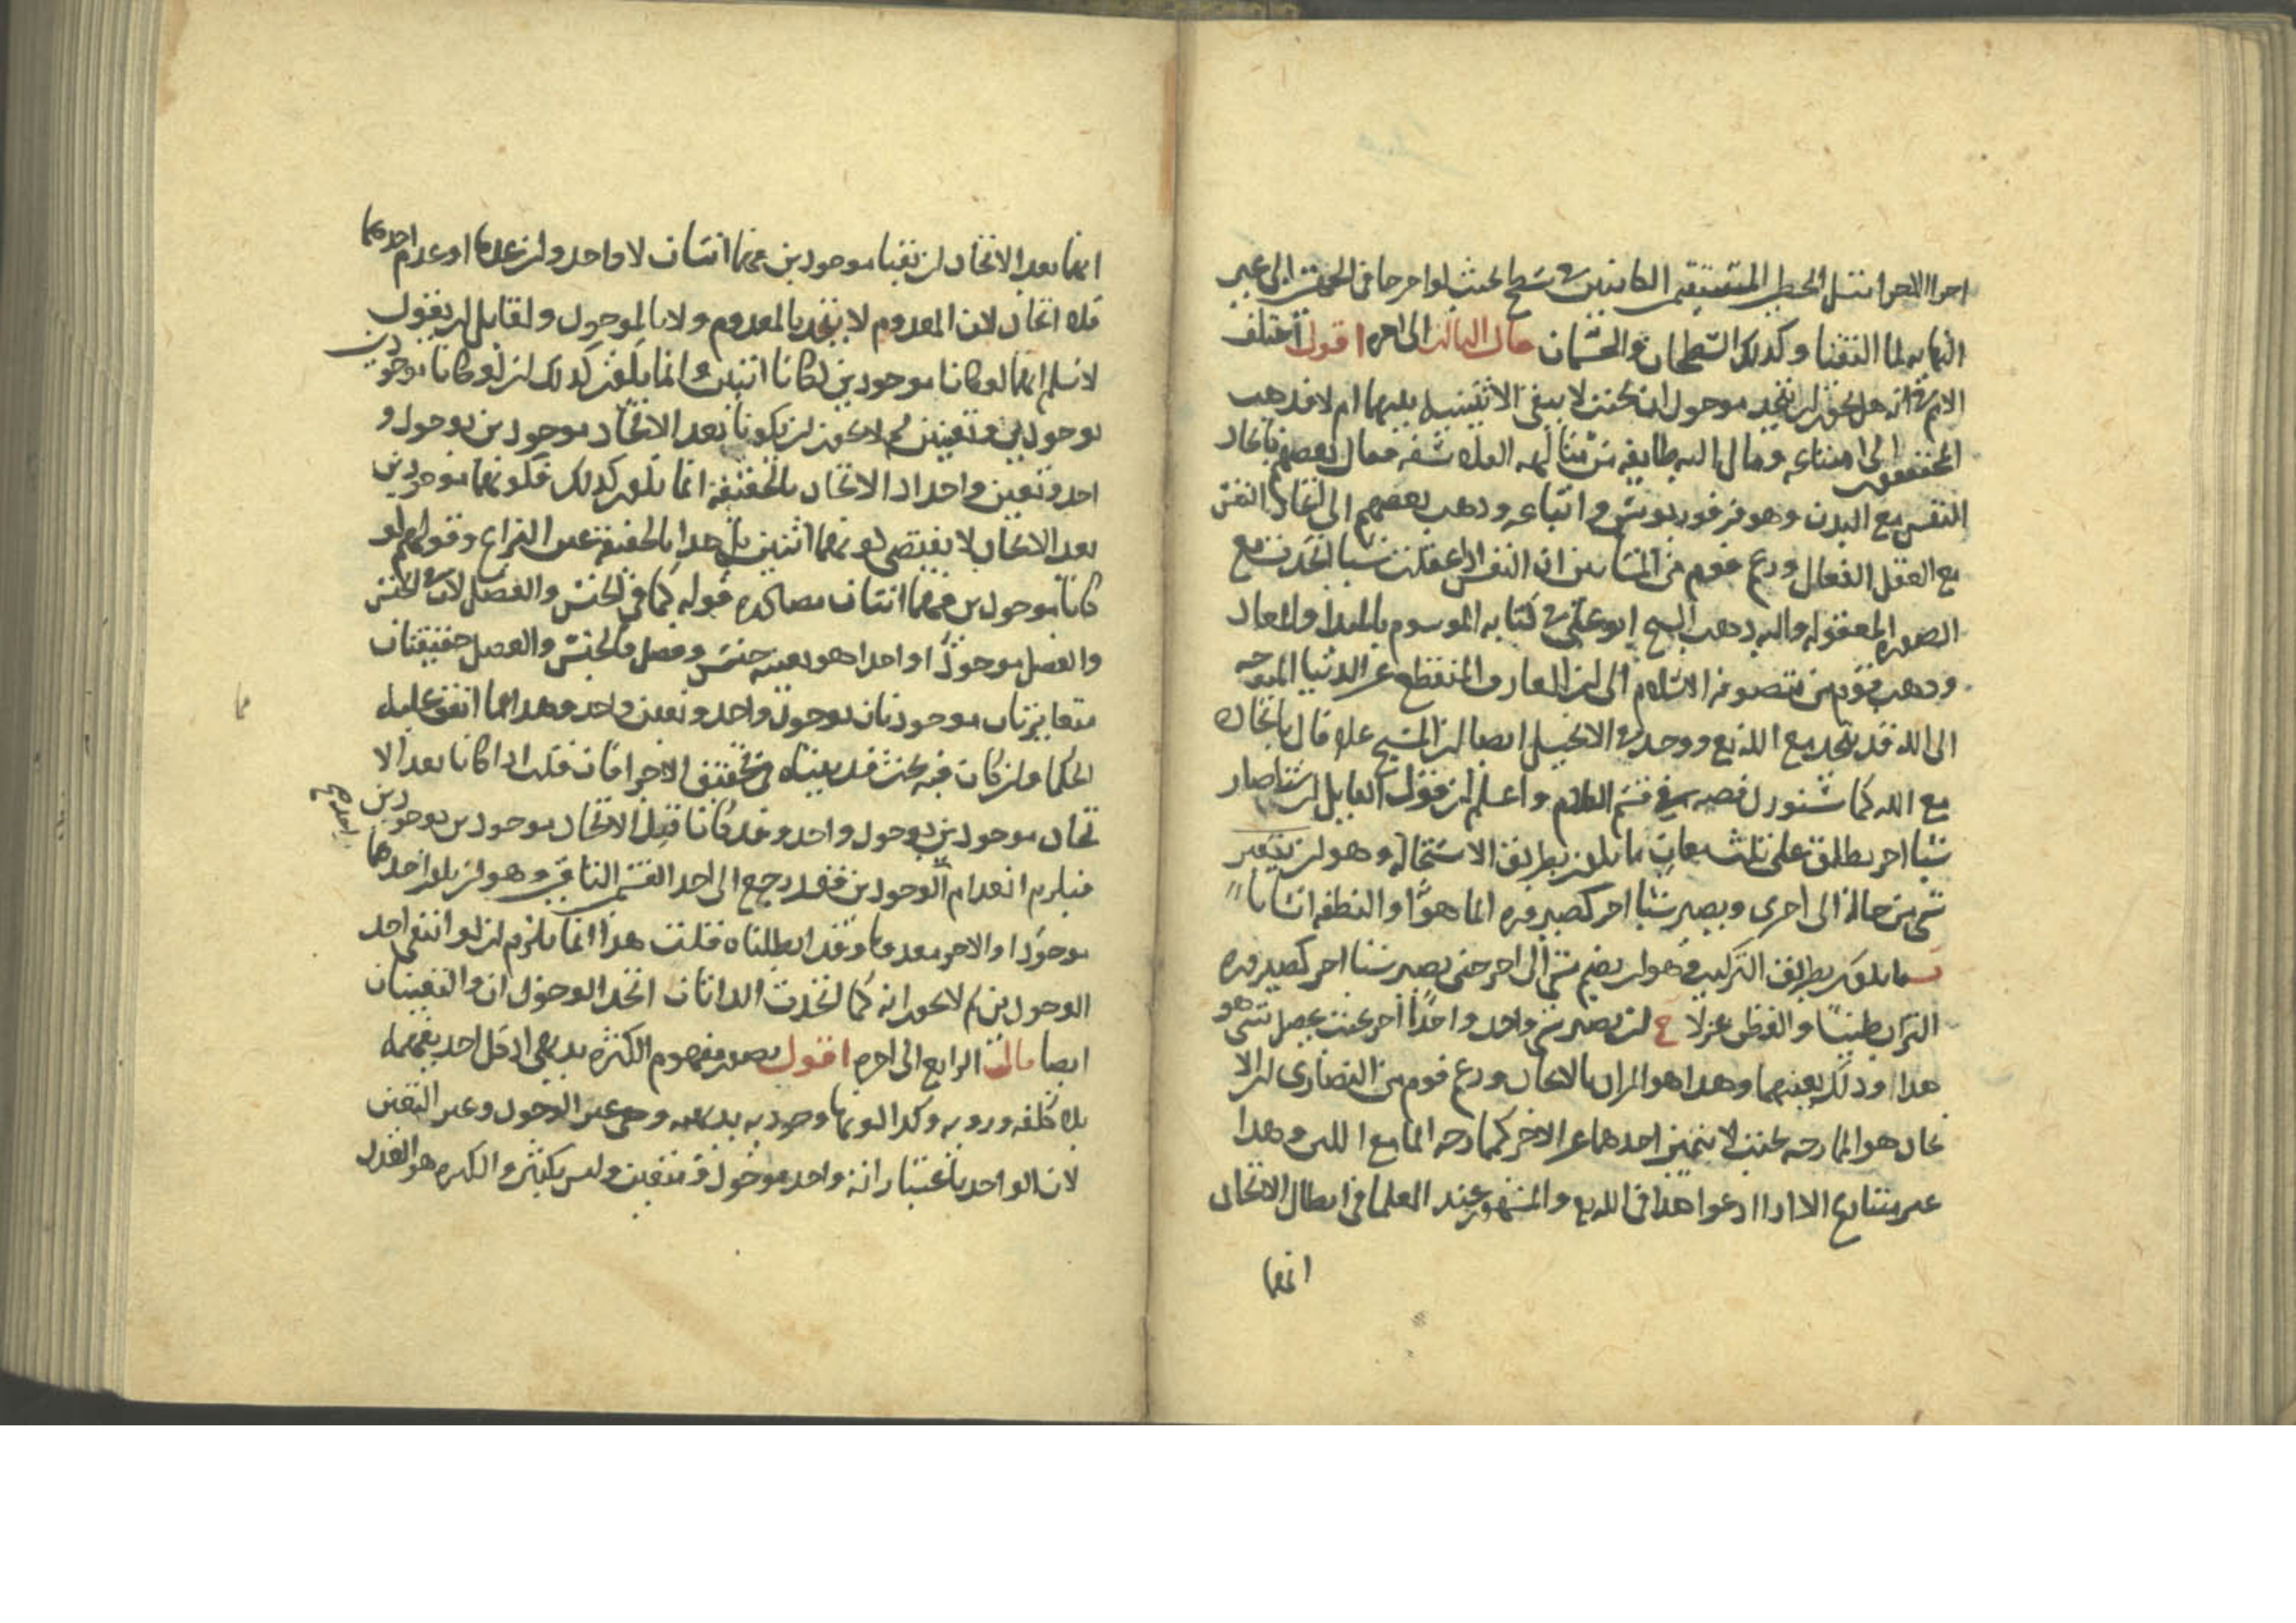 النهايه لما التقيا وكذلك السطحان والجسمان قال الثالث الى اخره اقول اختلف
الامم في انه هل يجوز ان يتحد موجودان بحيث لا يبقى الاثنينيه بينهما ام لا فذهب
المحققون الى امتناعه ومال اليه طايفه من متالهه الفلاسفه فقال بعضهم باتحاد
النفس مع البدن وهو فرفوريوس واتباعه وذهب بعضهم الى اتحاد النفس
مع العقل الفعال وزعم قوم من المشاين ان النفس اذا عقلت شيا اتحدت مع
الصوره المعقوله واليه ذهب الشيخ ابو علي في كتابه الموسوم بالمبدا والمعاد
وذهب قوم من متصوفه الاسلام الى ان العارف المنقطع عن الدنيا المتوجه
الى الله قد يتحد مع الله تع ووجد في الانجيل ايضا ان المسيح عله قال باتحاده
مع الله كما سنورد قصه في قسم الكلام واعلم ان قول القايل ان شيا صار
شيا اخر يطلق على ثلث معان ما يكون بطريق الاستحاله وهو ان يتغير
شي من حاله الى اخرى ويصير شيا اخر كصيروره الما هوا والنطفه انسانا
ب ما يكون بطريق التركيب وهو ان يضم شي الى اخر حتى يصير شيا اخر كصيروره
التراب طينا والقطن غزلا ج ان يصير شي واحد واحدا اخر بحيث يحصل شي هو
هذا وذلك بعينهما وهذا هو المراد بالاتحاد وزعم قوم من النصارى ان الا
تحاد هو الممازجه بحيث لا يتميز احدهما عن الاخر كممازجه الما مع اللبن وهذا
غير متنازع الا اذا ادعوا هذا في الله تع والمشهور عند العلما في ابطال الاتحاد
انهما
انهما بعد الاتحاد ان بقيا موجودين فهما اثنان لا واحد وان عدما او عدم احدهما
فلا اتحاد لان المعدوم لا يتحد بالمعدوم ولا بالموجود ولقايل ان يقول
لا نسلم انهما لو كانا موجودين لكانا اثنين وانما يكون كذلك ان لو كانا موجودين
بوجودين وتعينين لم لا يجوز ان يكونا بعد الاتحاد موجودين بوجود و
احد وتعين واحد اذ الاتحاد بالحقيقه انما يكون كذلك فكونهما موجودين
بعد الاتحاد لا يقتضي كونهما اثنين بل هذا بالحقيقه عين النزاع وقولهم لو
كانا موجودين فهما اثنان مصادره قوله كما في الجنس والفصل لان الجنس
والفصل موجودا واحدا هو بعينه جنس وفصل فالجنس والفصل حقيقتان
متغايرتان موجودتان بوجود واحد وتعين واحد وهذا مما اتفق عليه
الحكما وان كان فيه بحث قد بيناه في تحقيق الاجزا فان قلت اذا كانا بعد الا
تحاد موجودين بوجود واحد وقد كانا قبل الاتحاد موجودين بوجودين
فيلزم انعدام الوجودين فقد رجع الى احد القسم الثاني وهو ان يكون احدهما
موجودا والاخر معدوما وقد ابطلناه قلت هذا انما يلزم ان لو انتفى احد
الوجودين لم لا يجوز انه كما اتحدت الذاتان اتحد الوجودان والتعينان
ايضا قال الرابع الى اخره اقول تصور مفهوم الكثره بديهي اذ كل احد يفهمه
بلا كلفه ورويه وكذا كونها وجوديه بديهيه وهي غير الوجود وغير التعين
لان الواحد باعتبار انه واحد موجود ومتعين وليس بكثير والكثره هو العدد